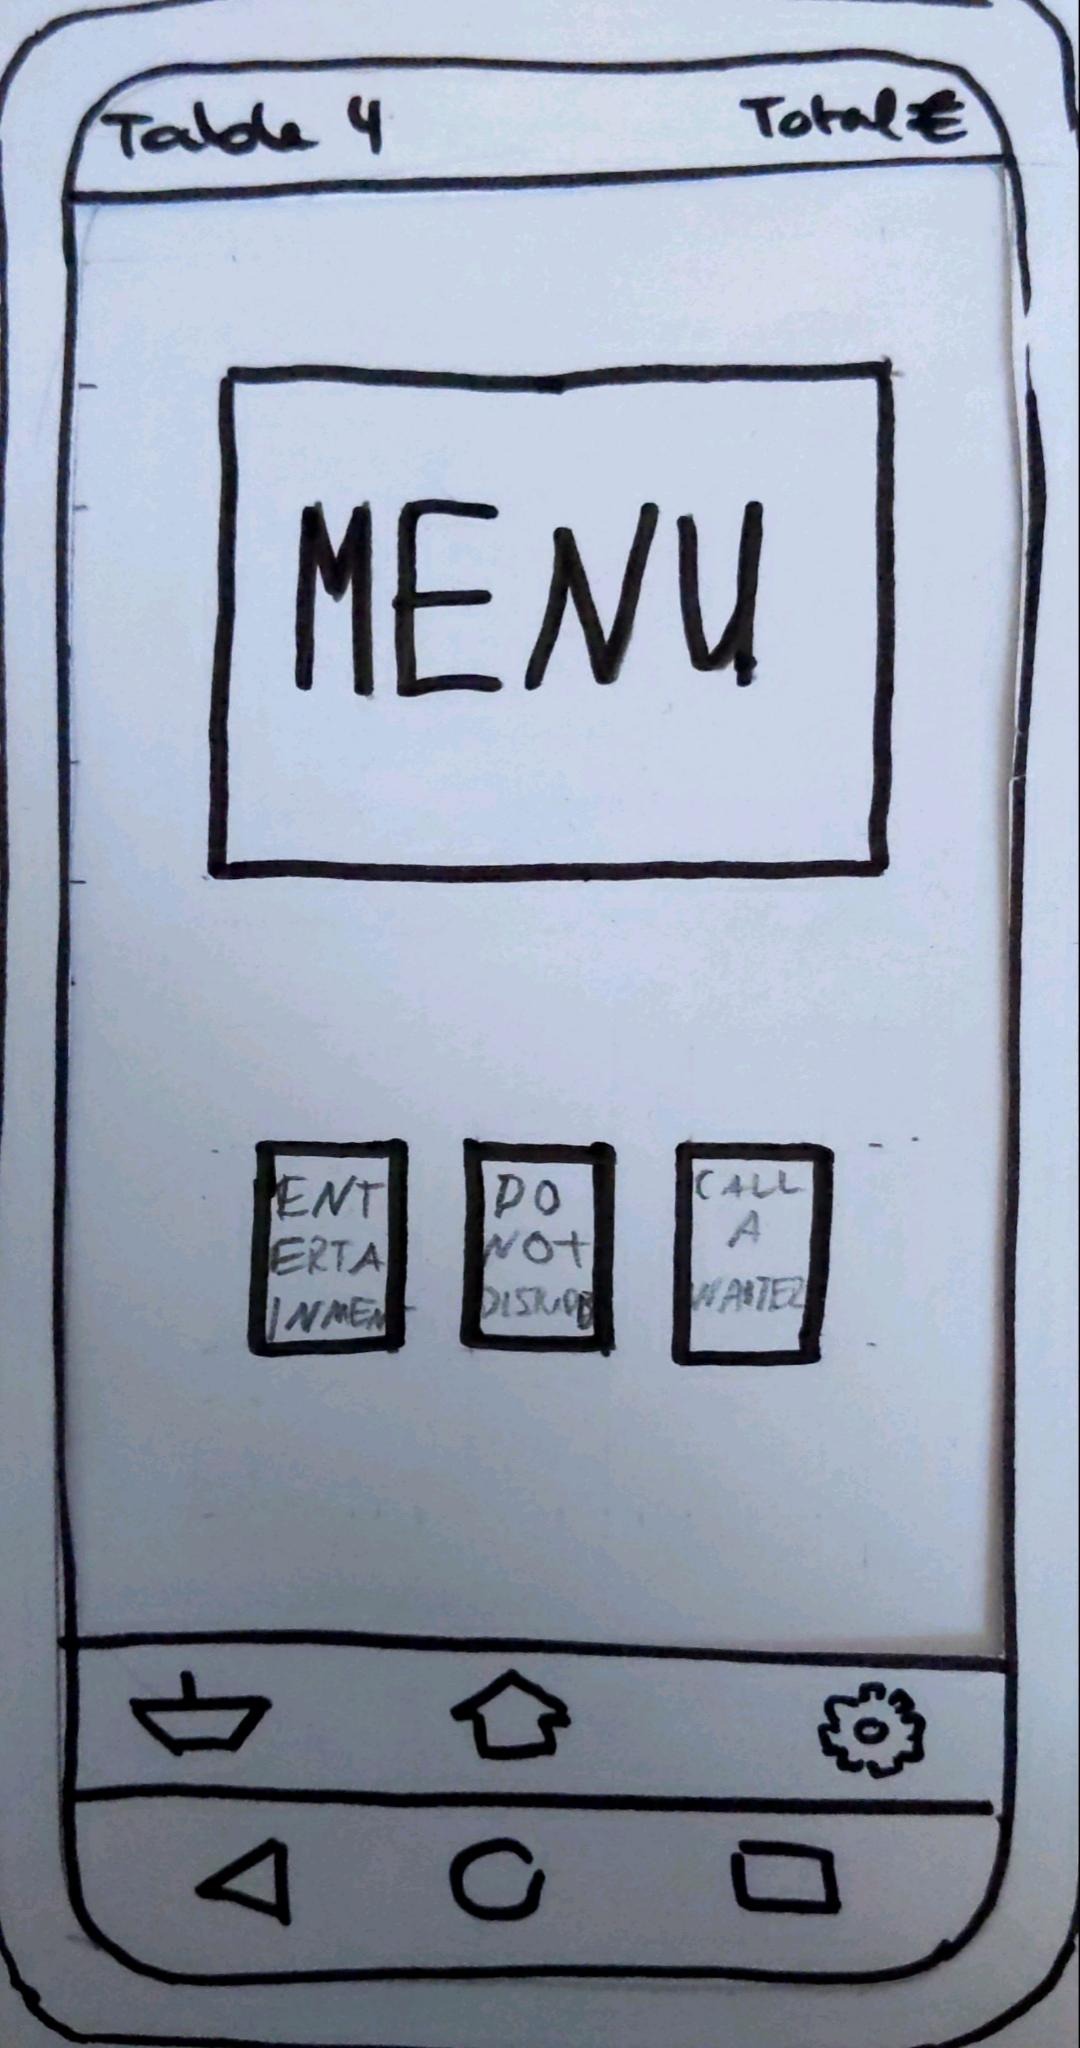 Table 4
Total €
MENU
ENT
ERTA
INMENT
DO
NOT
CALL
A
WAITER